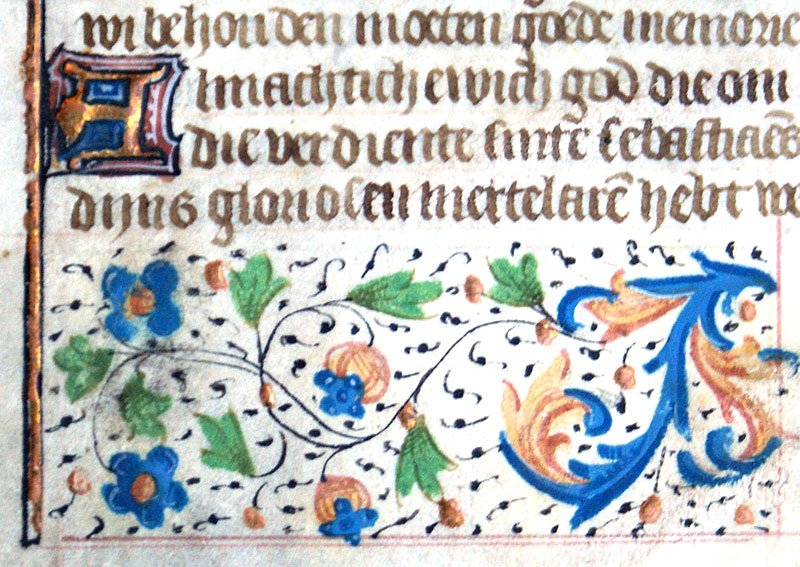 wi behouden moeten goede memorie
Almachtich ewich god die om
die verdiente sinte sebastiaēs
dijns gloriosen mertelarē hebt